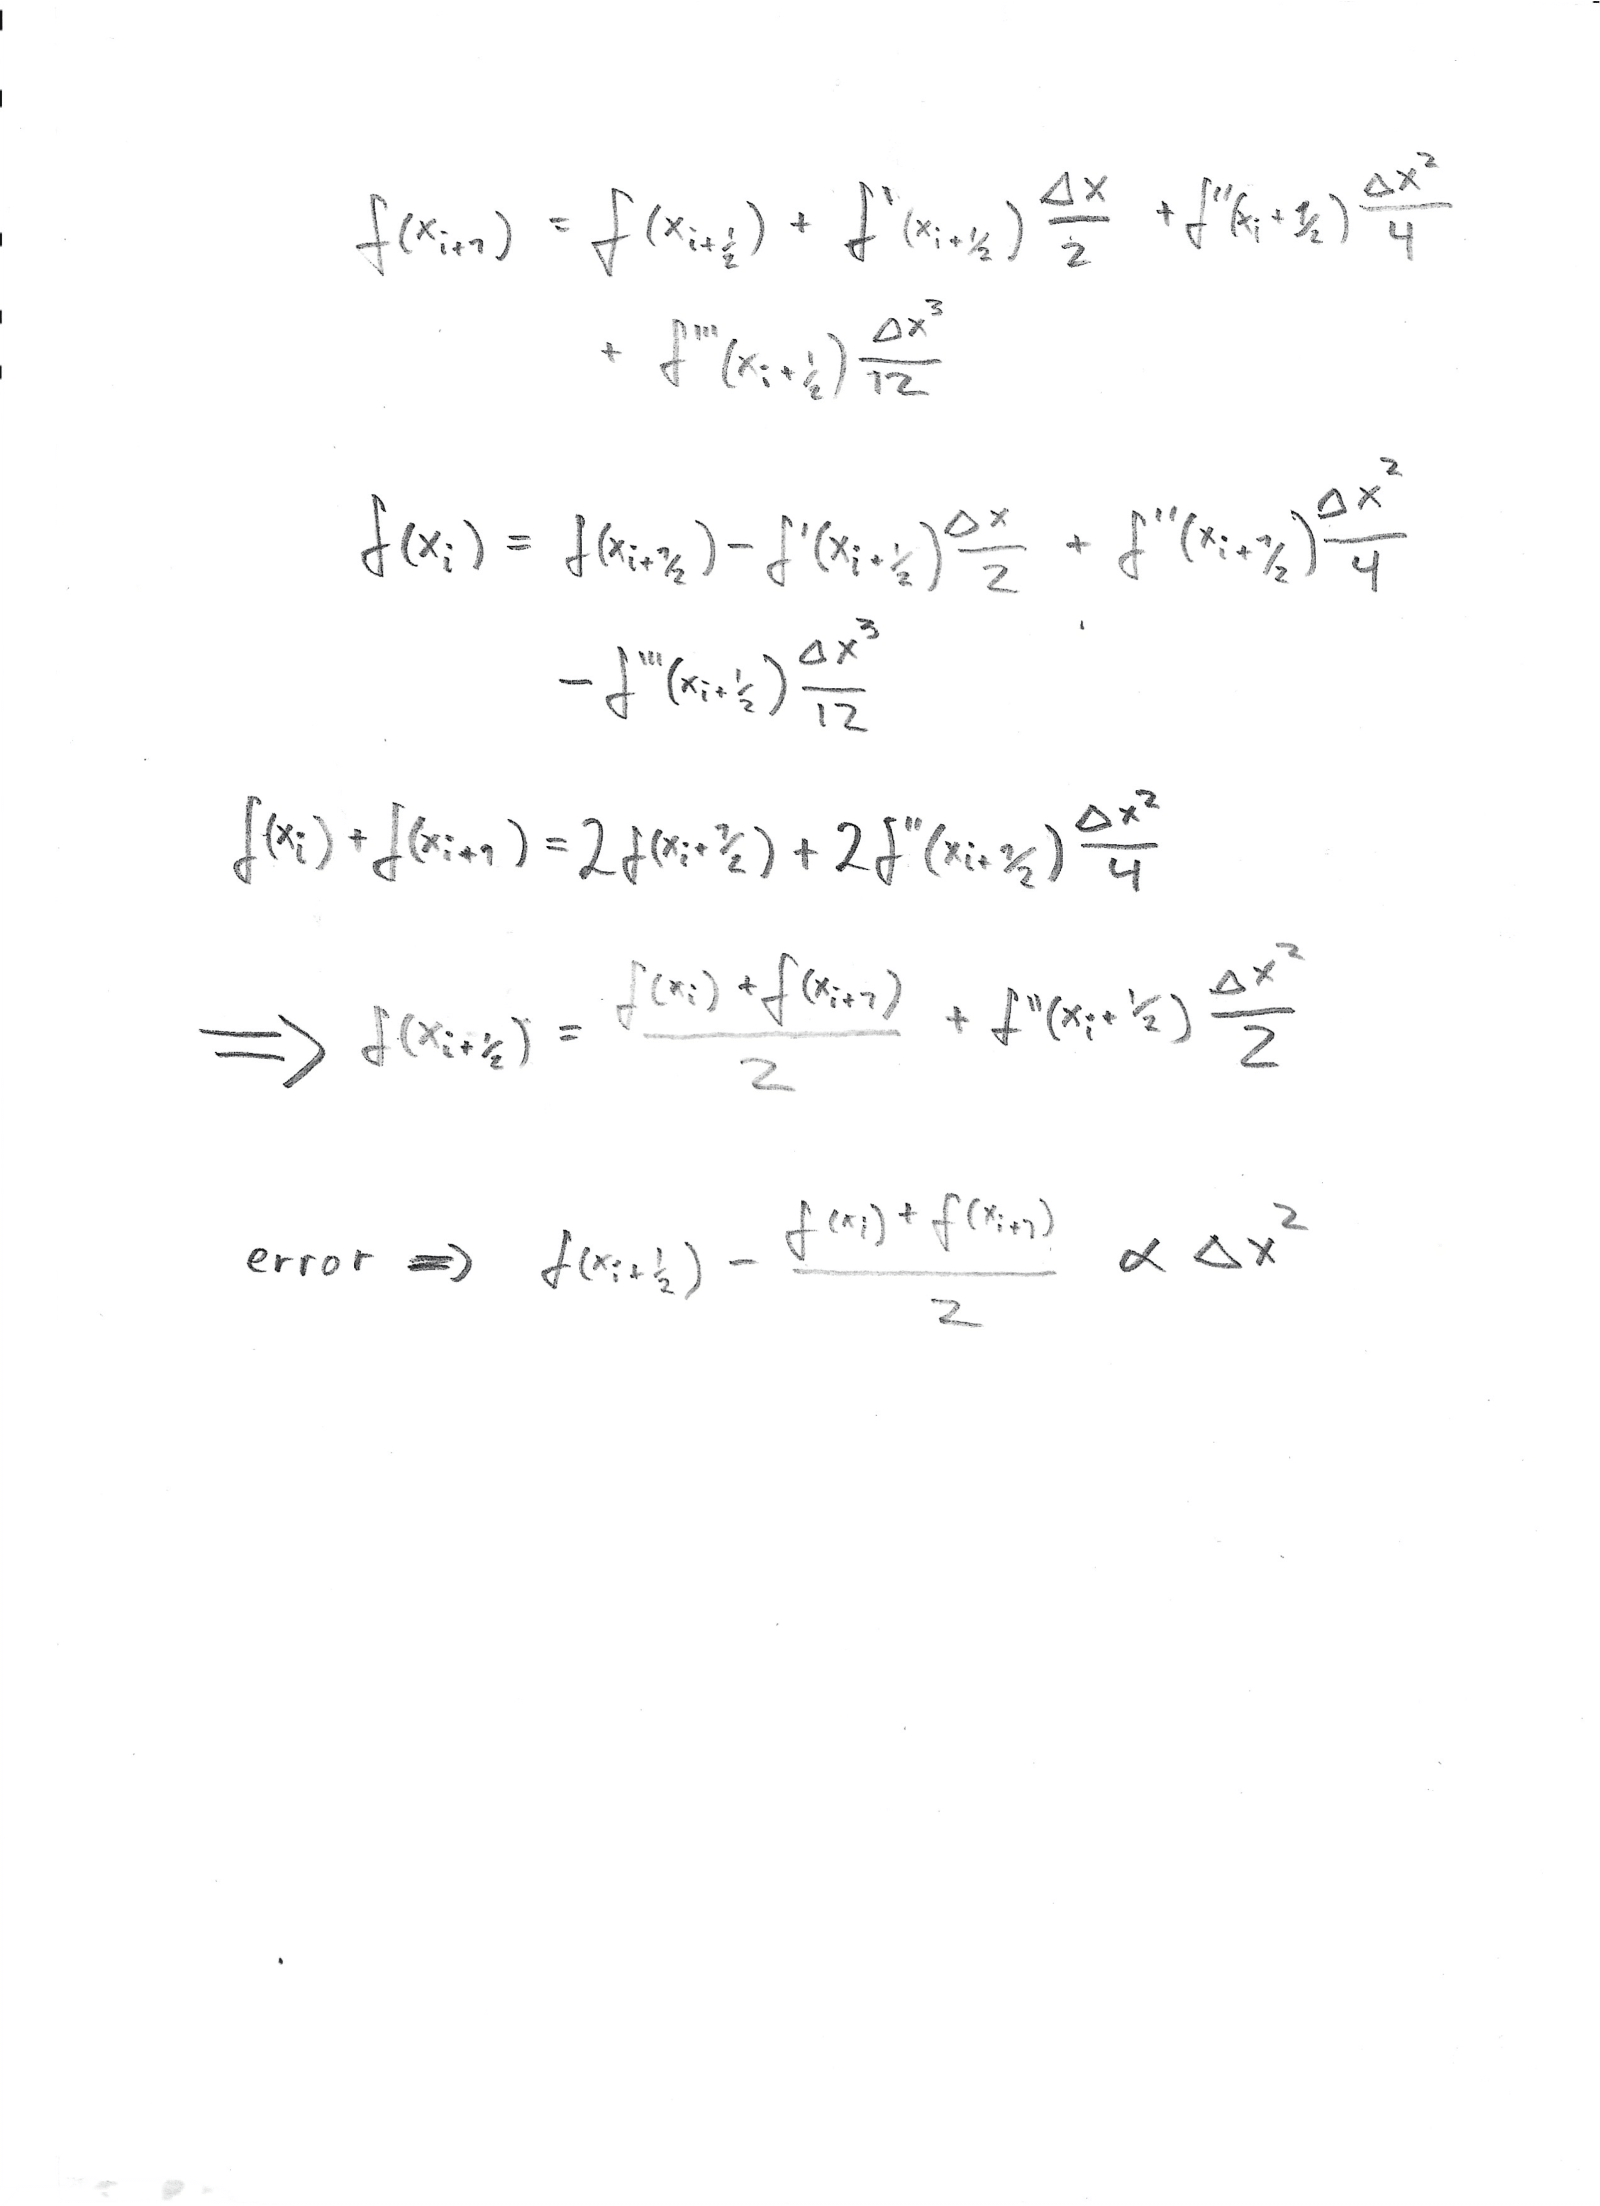 f(x_{i+1}) = f(x_{i+½}) + f'(x_{i+½}) Δx/2 + f''(x_{i+½}) Δx²/4
+ f'''(x_{i+½}) Δx³/12
f(x_i) = f(x_{i+½}) - f'(x_{i+½}) Δx/2 + f''(x_{i+½}) Δx²/4
- f'''(x_{i+½}) Δx³/12
f(x_i) + f(x_{i+1}) = 2f(x_{i+½}) + 2f''(x_{i+½}) Δx²/4
⇒ f(x_{i+½}) = (f(x_i) + f(x_{i+1}))/2 + f''(x_{i+½}) Δx²/2
error ⇒ f(x_{i+½}) - (f(x_i) + f(x_{i+1}))/2 ∝ Δx²